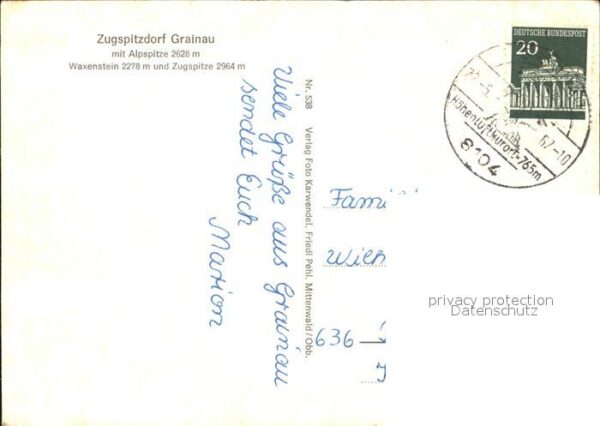 Zugspitzdorf Grainau
mit Alpspitze 2628 m
Waxenstein 2278 m und Zugspitze 2964 m
Viele Grüße aus Grainau
sendet Euch
Marion
Nr. 538 Verlag Foto Karwendel, Friedl Pehl, Mittenwald/Obb.
DEUTSCHE BUNDESPOST
20
67-10
Höhenluftkurort-765m
8104
Fami
636
privacy protection
Datenschutz